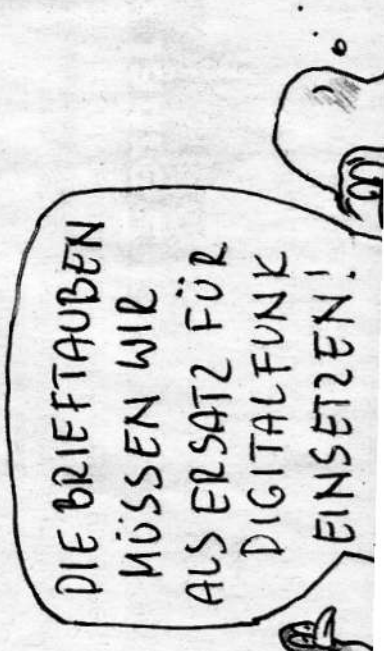 DIE BRIEFTAUBEN
MÜSSEN WIR
ALS ERSATZ FÜR
DIGITALFUNK
EINSETZEN!